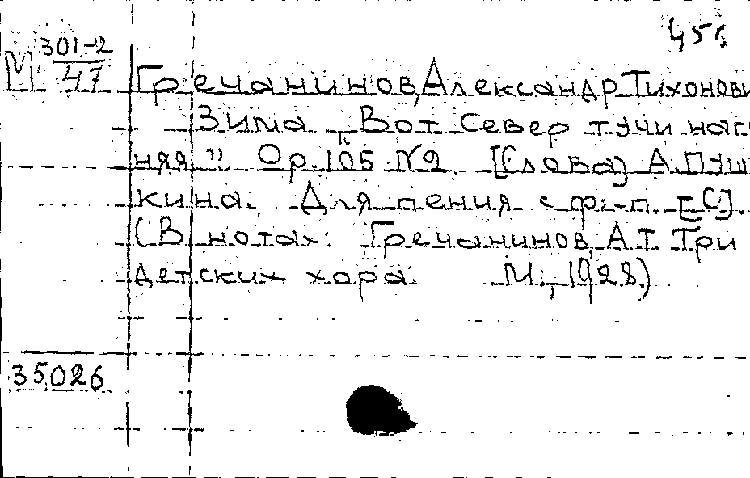 45
М 301-2
47
Гречанинов, Александр Тихонови
Зима „Вот север тучи наго
няя" Ор. 105 №2. [Слова] А. Пуш
кина. Для пения с ф.-п. [С].
(В нотах: Гречанинов, А.Т. Три
детских хора. М., 1928.)
35026